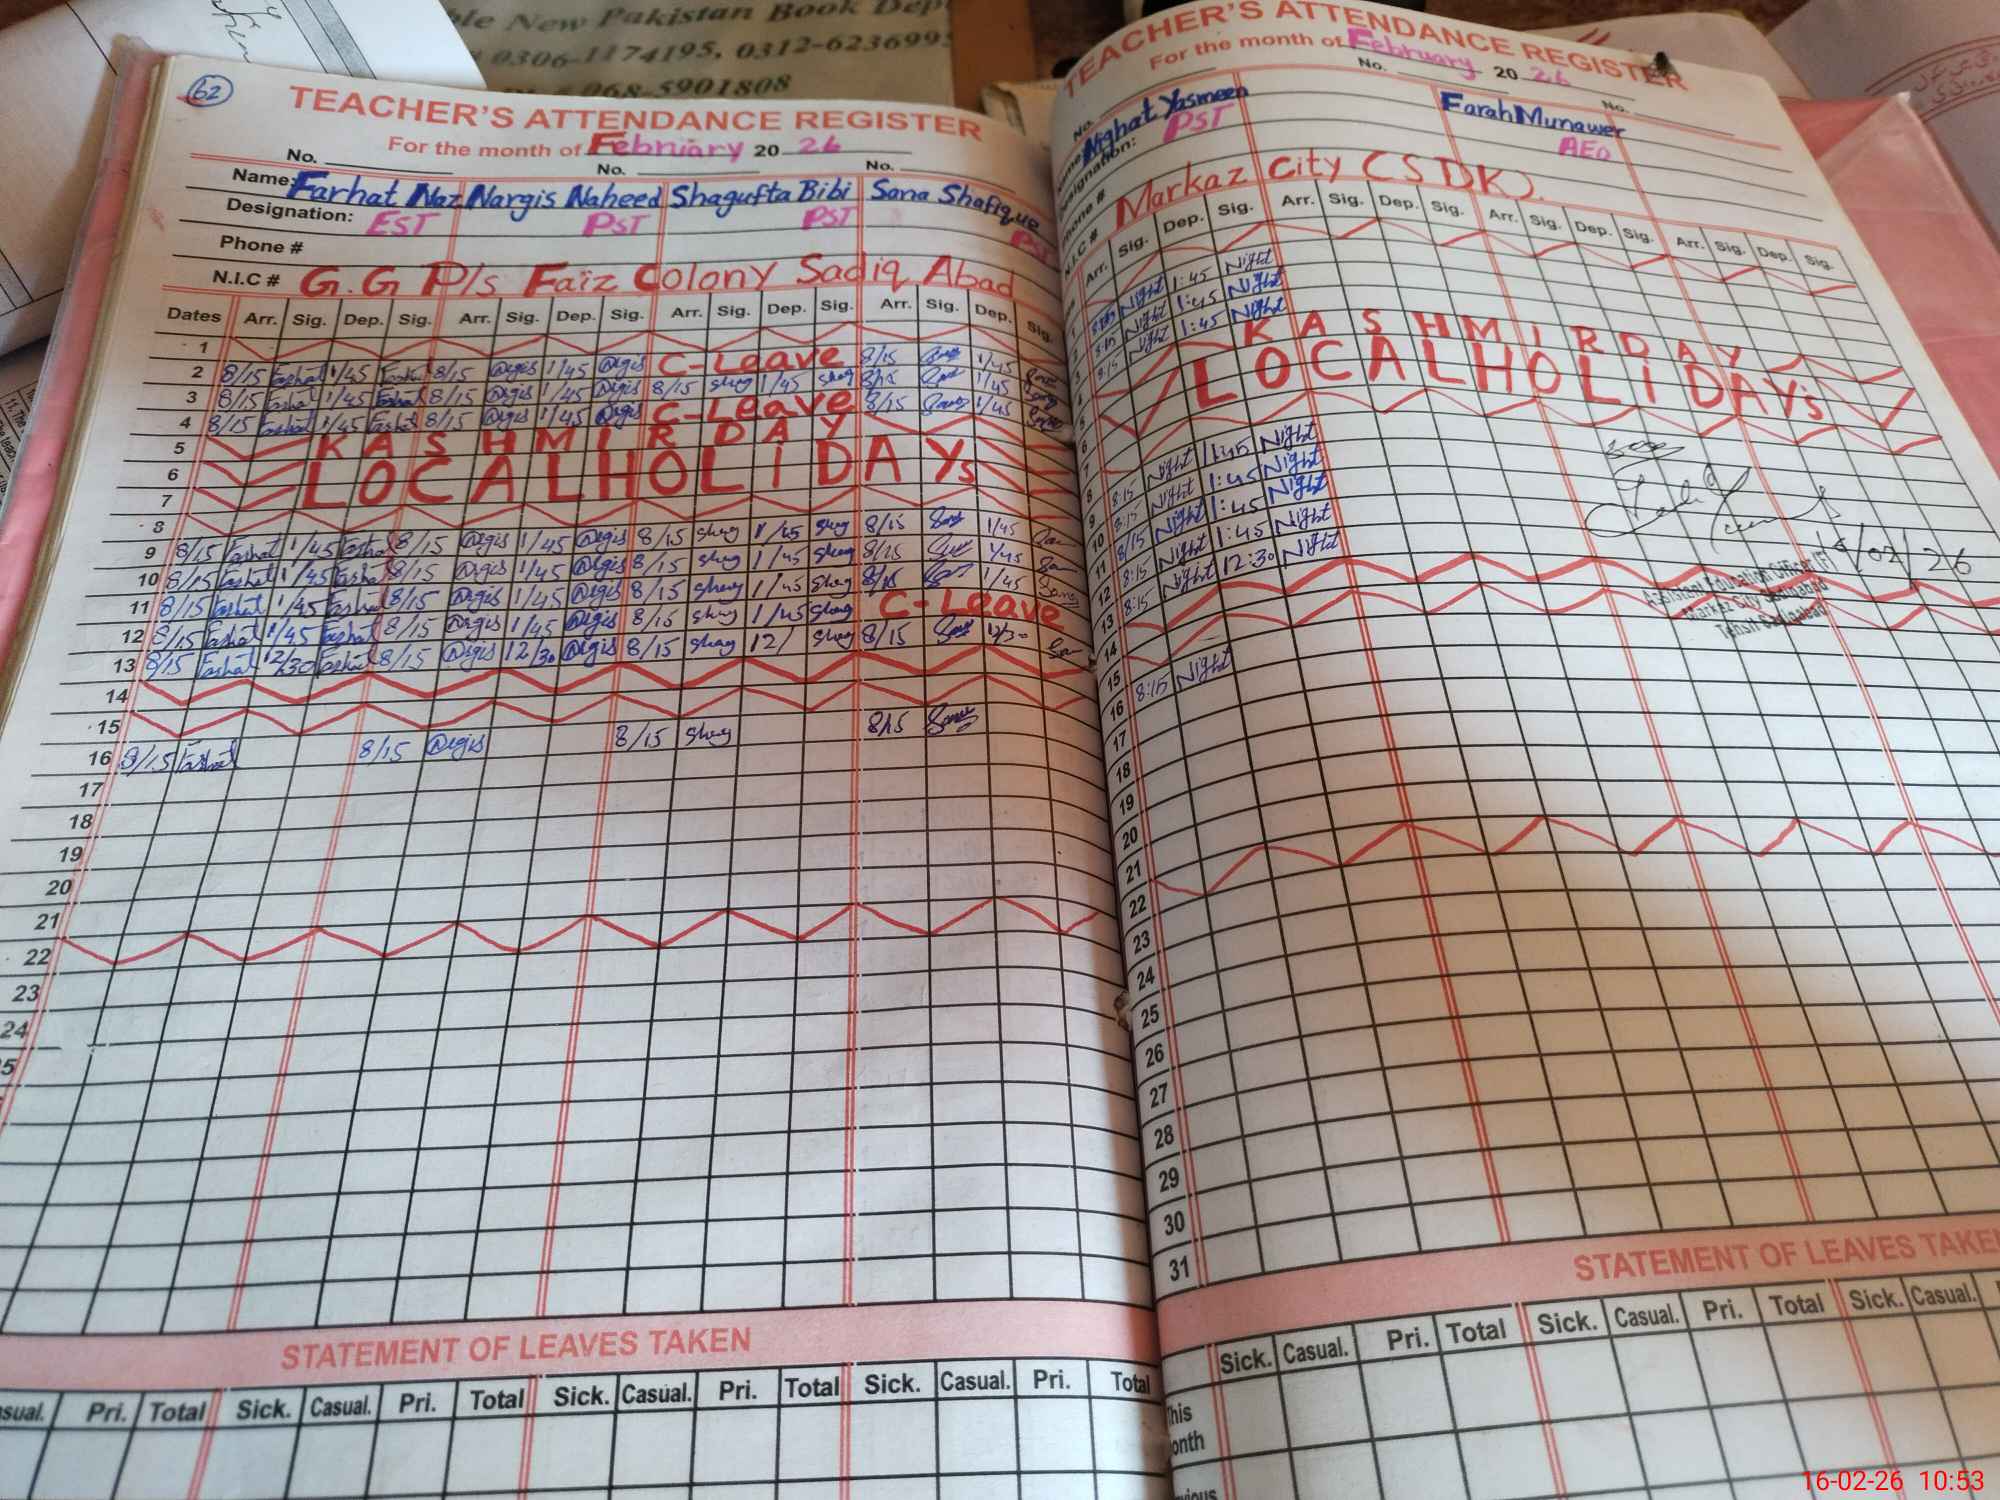 ble New Pakistan Book Dep
0306-1174195, 0312-6236995
068-5901808
62
TEACHER'S ATTENDANCE REGISTER
For the month of February 20 26
No. No. No.
Name: Farhat Naz Nargis Naheed Shagufta Bibi Sana Shafique
Designation: EST PST PST PST
Phone #
N.I.C # G.G P/s Faiz Colony Sadiq Abad
Dates Arr. Sig. Dep. Sig. Arr. Sig. Dep. Sig. Arr. Sig. Dep. Sig. Arr. Sig. Dep. Sig.
1
2 8/15 Farhat 1/45 Farhat 8/15 Nrgis 1/45 Nrgis C-Leave 8/15 Sana 1/45 Sana
3 8/15 Farhat 1/45 Farhat 8/15 Nrgis 1/45 Nrgis 8/15 shag 1/45 shag 8/15 Sana 1/45 Sana
4 8/15 Farhat 1/45 Farhat 8/15 Nrgis 1/45 Nrgis C-Leave 8/15 Sana 1/45 Sana
5 KASHMIR DAY
6 LOCAL HOLIDAYs
7
8
9 8/15 Farhat 1/45 Farhat 8/15 Nrgis 1/45 Nrgis 8/15 shag 1/45 shag 8/15 Sana 1/45 Sana
10 8/15 Farhat 1/45 Farhat 8/15 Nrgis 1/45 Nrgis 8/15 shag 1/45 shag 8/15 Sana 1/45 Sana
11 8/15 Farhat 1/45 Farhat 8/15 Nrgis 1/45 Nrgis 8/15 shag 1/45 shag 8/15 Sana 1/45 Sana
12 8/15 Farhat 1/45 Farhat 8/15 Nrgis 1/45 Nrgis 8/15 shag 1/45 shag C-Leave
13 8/15 Farhat 12/30 Farhat 8/15 Nrgis 12/30 Nrgis 8/15 shag 12/ shag 8/15 Sana 12/30 Sana
14
15
16 8/15 Farhat 8/15 Nrgis 8/15 shag 8/15 Sana
17
18
19
20
21
22
23
24
5
STATEMENT OF LEAVES TAKEN
sual. Pri. Total Sick. Casual. Pri. Total Sick. Casual. Pri. Total Sick. Casual. Pri. Total
TEACHER'S ATTENDANCE REGISTER
For the month of February 20 26
No. No. No.
Name: Nighat Yasmeen Farah Munawer
Designation: PST AEO
Phone # Markaz City (SDK).
N.I.C #
Arr. Sig. Dep. Sig. Arr. Sig. Dep. Sig. Arr. Sig. Dep. Sig. Arr. Sig. Dep. Sig.
8:15 Night 1:45 Night
8:15 Night 1:45 Night
8:15 Night 1:45 Night
KASHMIR DAY
LOCAL HOLIDAY's
6
7
8
9 8:15 Night 1:45 Night
10 8:15 Night 1:45 Night
11 8/15 Night 1:45 Night
12 8:15 Night 1:45 Night
13 8:15 Night 12:30 Night
14
15
16 8:15 Night
17
18
19
20
21
22
23
24
25
26
27
28
29
30
31
16/02/26
Assistant Education Officer (F)
Markaz City Sadiqabad
Tehsil Sadiqabad
STATEMENT OF LEAVES TAKEN
Sick. Casual. Pri. Total Sick. Casual. Pri. Total Sick. Casual.
This
onth
vious
16-02-26 10:53